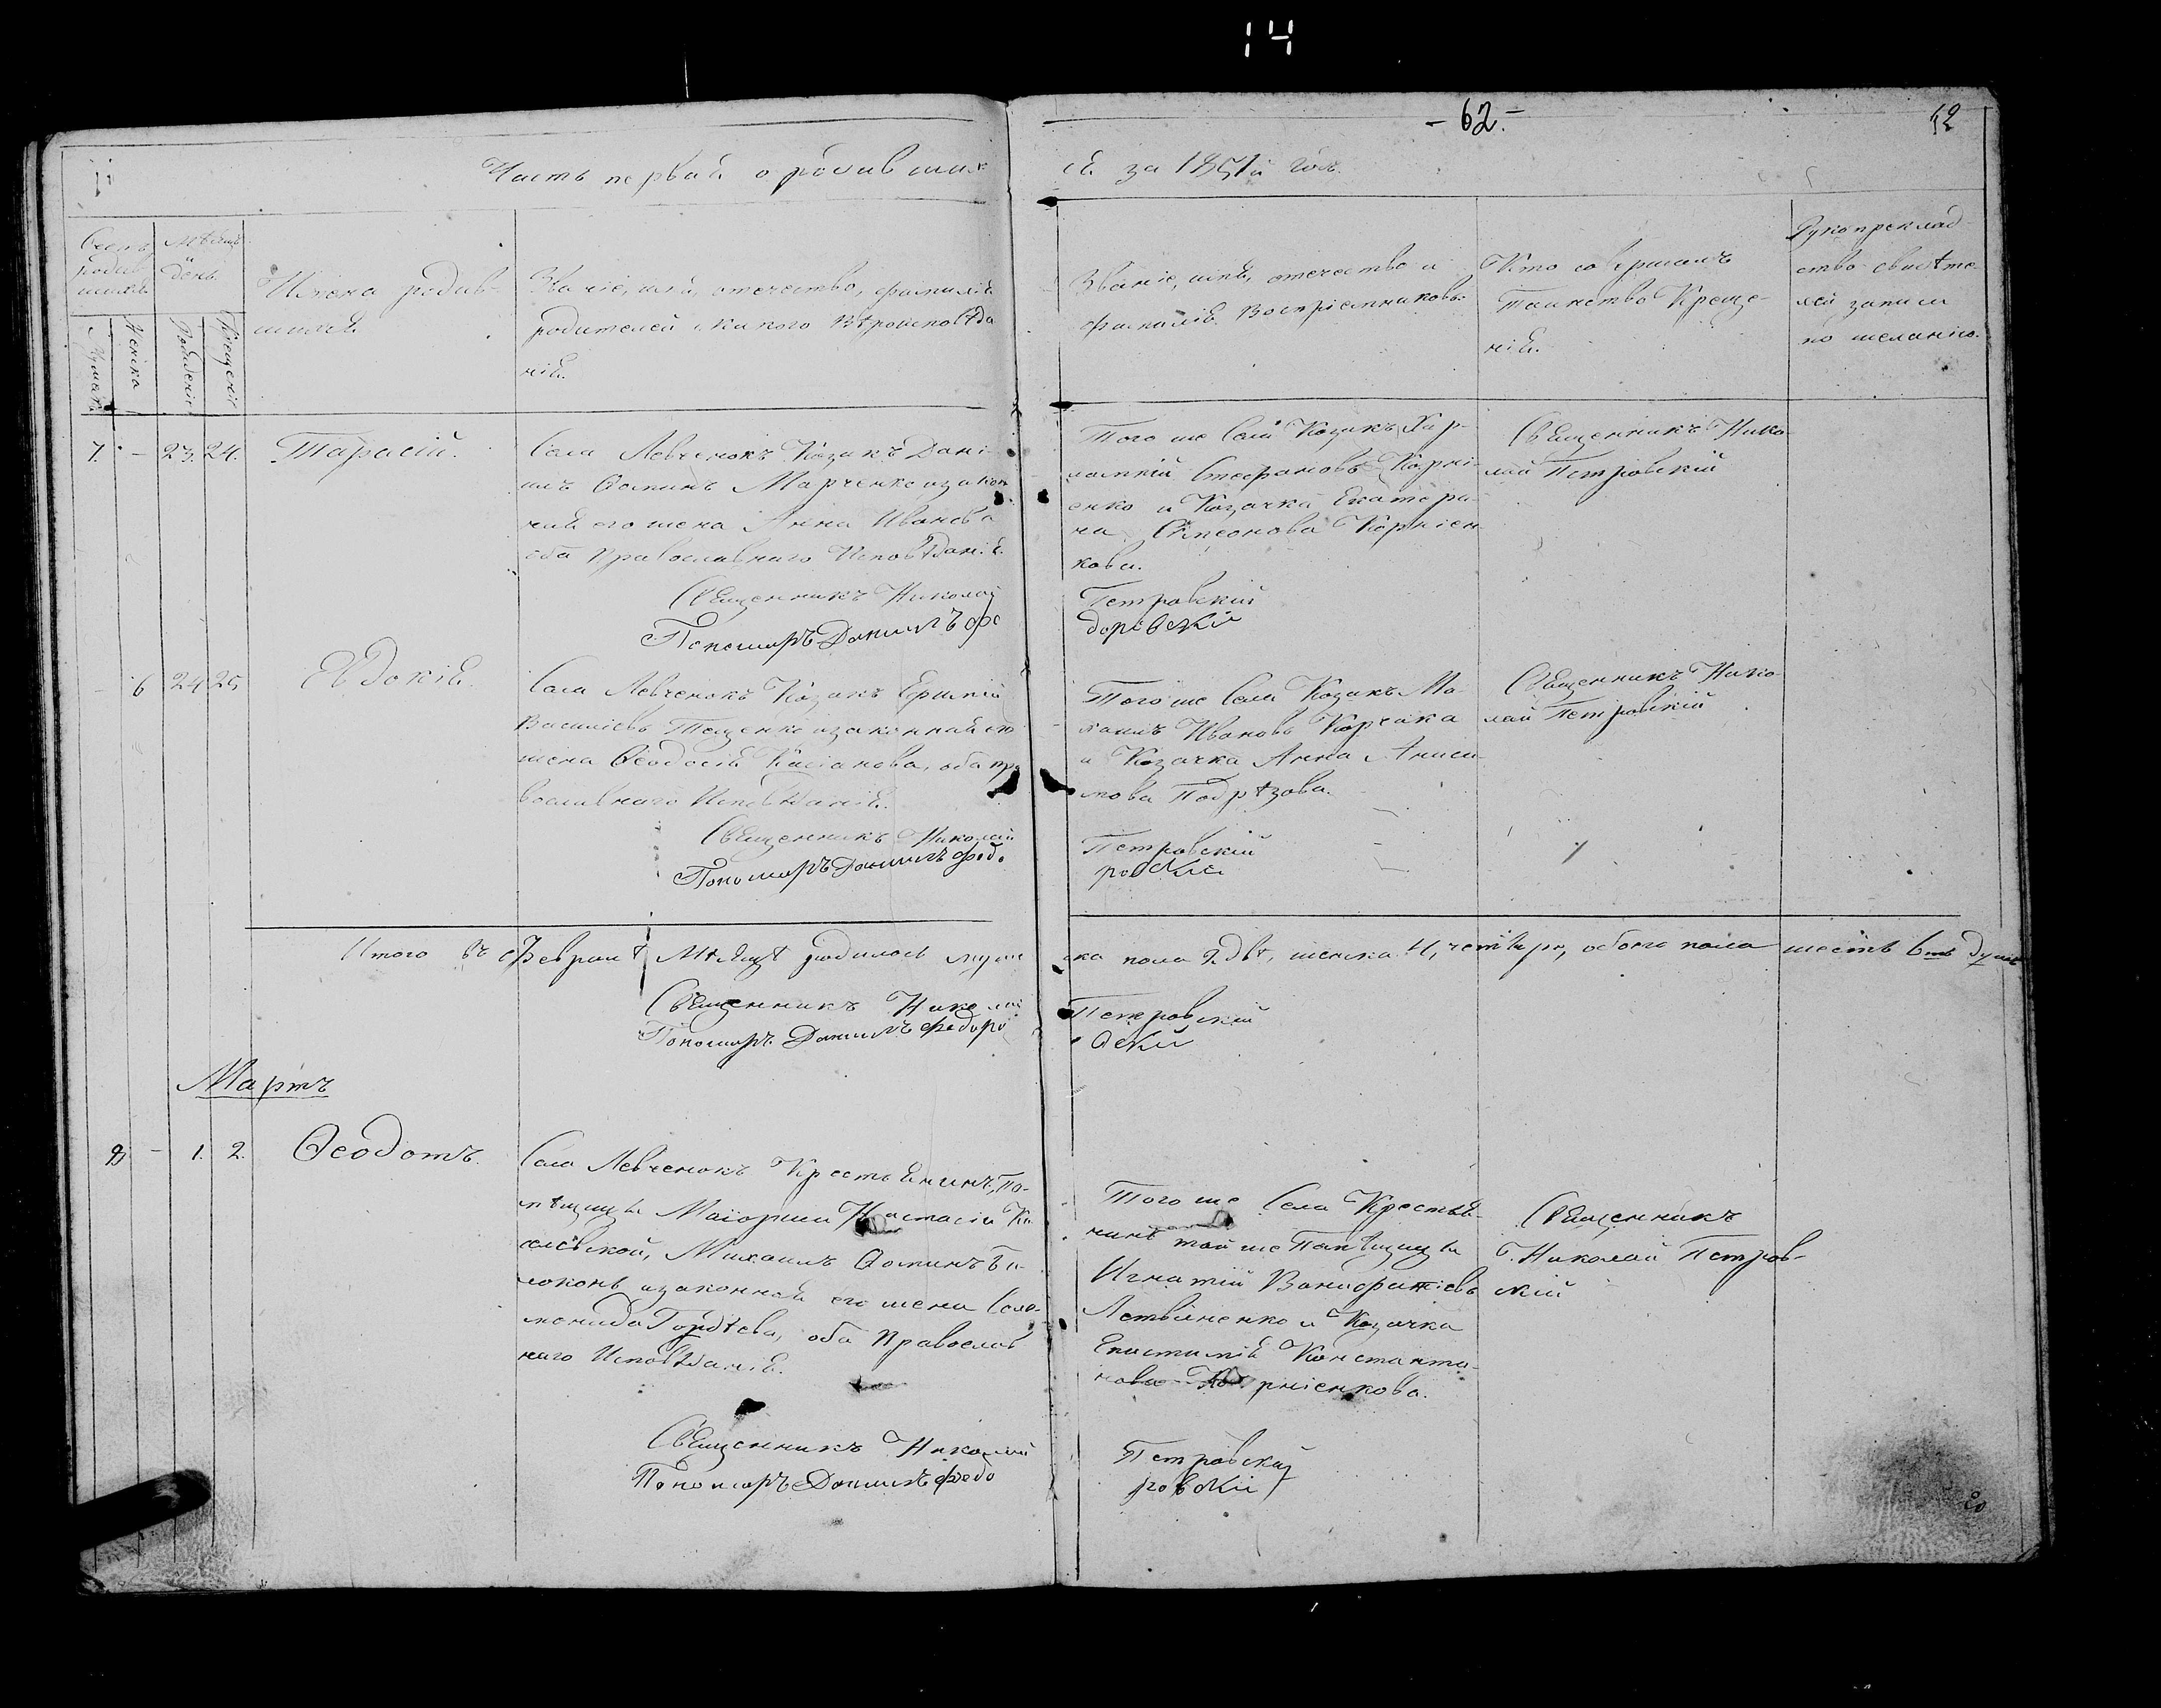 14
- 62.-
Часть первая о родивших
ся за 1851й годъ.
Счетъ
родив
шихся
Мужеска
Женска
Мѣсяцъ
и
день.
Рожденія
Крещенія
Имена родив-
шихся
Званіе, имя, отечество, фамилія
родителей и какого вѣроисповѣда
нія.
Званіе, имя, отечество и
фамилія Воспріемниковъ.
Кто совершалъ
Таинство Креще-
нія.
Рукоприклад
ство свидѣте
лей записи
по желанію.
7. - 23. 24. Тарасій.
Села Левченокъ Козакъ Дані-
илъ Ѳоминъ Марченко и закон
ная его жена Анна Иванова
оба Православнаго Исповѣданія.
Священникъ Николай
Пономаръ Даниилъ фе
Того же Села Козакъ Хар-
лампій Стефановъ Корні-
енко и Козачка Екатери-
на Корніен
кова.
Петровскій
доровскій
Священникъ Нико-
лай Петровскій
- 6 24 25 Евдокія.
Села Левченокъ Козакъ
Василіевъ Тещенко и законная его
жена Ѳеодосія Касіанова, оба пра
вославнаго Исповѣданія.
Священникъ Николай
Пономаръ Даниилъ федо
Того же Села Козакъ Ми-
хаилъ Ивановъ Корчака
и Козачка Анна Аниси-
мова Подрѣзова.
Петровскій
ровскій
Священникъ Нико-
лай Петровскій
Итого въ Февралѣ Мѣсяцѣ родилось муже
ска пола 2, двѣ, женска 4, четыри, обоего пола шесть 6ть душъ
Священникъ Николай
Пономаръ Даниилъ федоро
Петровскій
вский
Мартъ
8 - 1. 2. Ѳеодотъ.
Села Левченокъ Крестьянинъ, По-
мѣщицы Маіорши Настасіи
Михаилъ Ѳоминъ
и законной его жены Соло-
монида Гордѣева, оба Православ
наго Исповѣданія.
Священникъ Николай
Пономаръ Даниилъ федо
Того же Села Крестья-
нинъ той же Помѣщицы
Игнатій Ванифатіевъ
Летвиненко и Козачка
Епистимія Константи-
нова Корніенкова.
Петровскій
ровскій
Священникъ
Николай Петров-
скій